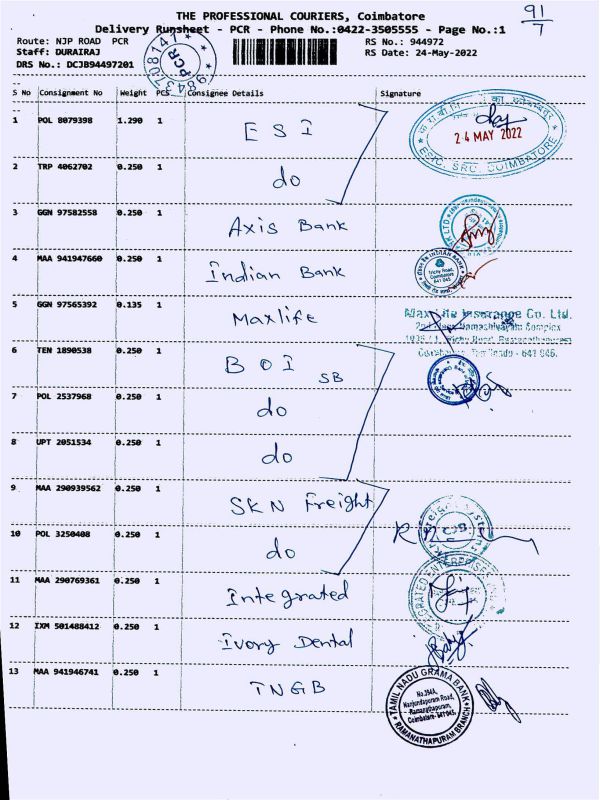 THE PROFESSIONAL COURIERS, Coimbatore
Delivery Runsheet - PCR - Phone No.:0422-3505555 - Page No.:1
91/7
Route: NJP ROAD PCR
RS No.: 944972
Staff: DURAIRAJ
RS Date: 24-May-2022
DRS No.: DCJB94497201
9843708147
PCR
S No Consignment No Weight PCS Consignee Details Signature
1 POL 8079398 1.290 1 ESI
24 MAY 2022
ESIC, SRO, COIMBATORE
2 TRP 4062702 0.250 1 do
3 GGN 97582558 0.250 1 Axis Bank
4 MAA 941947660 0.250 1 Indian Bank
INDIAN BANK
Trichy Road,
Coimbatore
641 045
5 GGN 97565392 0.135 1 Maxlife
Max Life Insurance Co. Ltd.
2nd Floor, Namashivayam Complex
Trichy Road, Ramanathapuram
Coimbatore, Tamilnadu - 641 045.
6 TEN 1890538 0.250 1 BOI SB
7 POL 2537968 0.250 1 do
8 UPT 2051534 0.250 1 do
9 MAA 290939562 0.250 1 SKN Freight
10 POL 3250408 0.250 1 do
CJB
11 MAA 290769361 0.250 1 Integrated
12 IXM 501488412 0.250 1 Ivory Dental
13 MAA 941946741 0.250 1 TNGB
TAMIL NADU GRAMA BANK
No.394A,
Nanjundapuram Road,
Ramanathapuram,
Coimbatore- 641 045.
RAMANATHAPURAM BRANCH